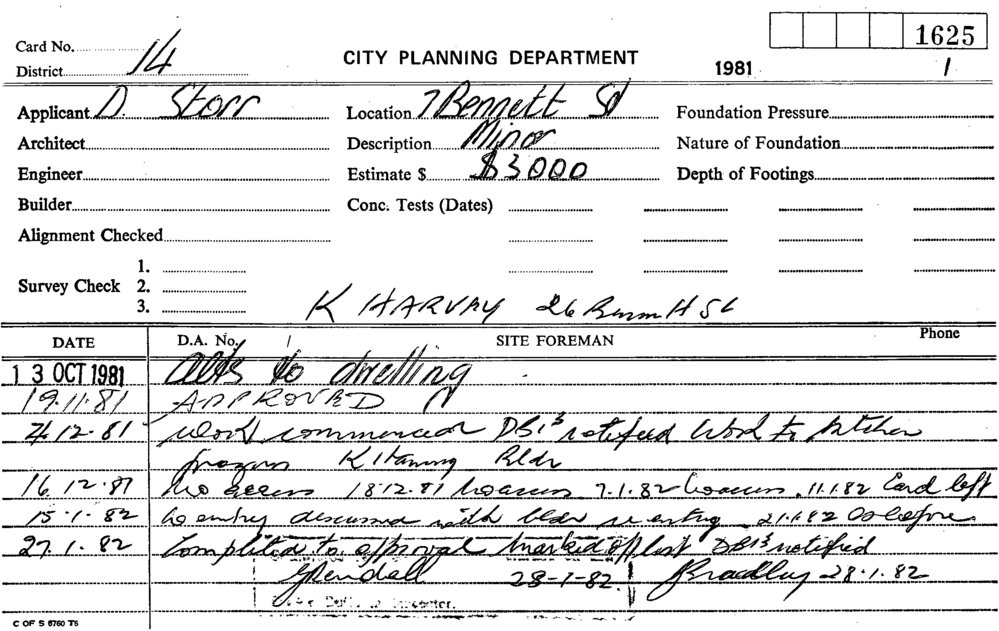 1625
Card No.
14
CITY PLANNING DEPARTMENT
1981 1
District
Applicant D. Storr Location 7 Bennett St Foundation Pressure
Architect Description Minor Nature of Foundation
Engineer Estimate $ $3000 Depth of Footings
Builder Conc. Tests (Dates)
Alignment Checked
1.
Survey Check 2.
3.
K HARVEY 26
DATE D.A. No. SITE FOREMAN Phone
13 OCT 1981 alts to dwelling
19.11.81 APPROVED
4.12.81 Work commenced notified Work to kitchen
K Bldr
16.12.81 no access 18.12.81 no access 7.1.82 no access 11.1.82 Card left
15.1.82 no entry discussed with bldr re entry 21.1.82 as before
27.1.82 Completed to approval marked off list notified
28-1-82. Bradley 28.1.82
C OF S 6760 T5